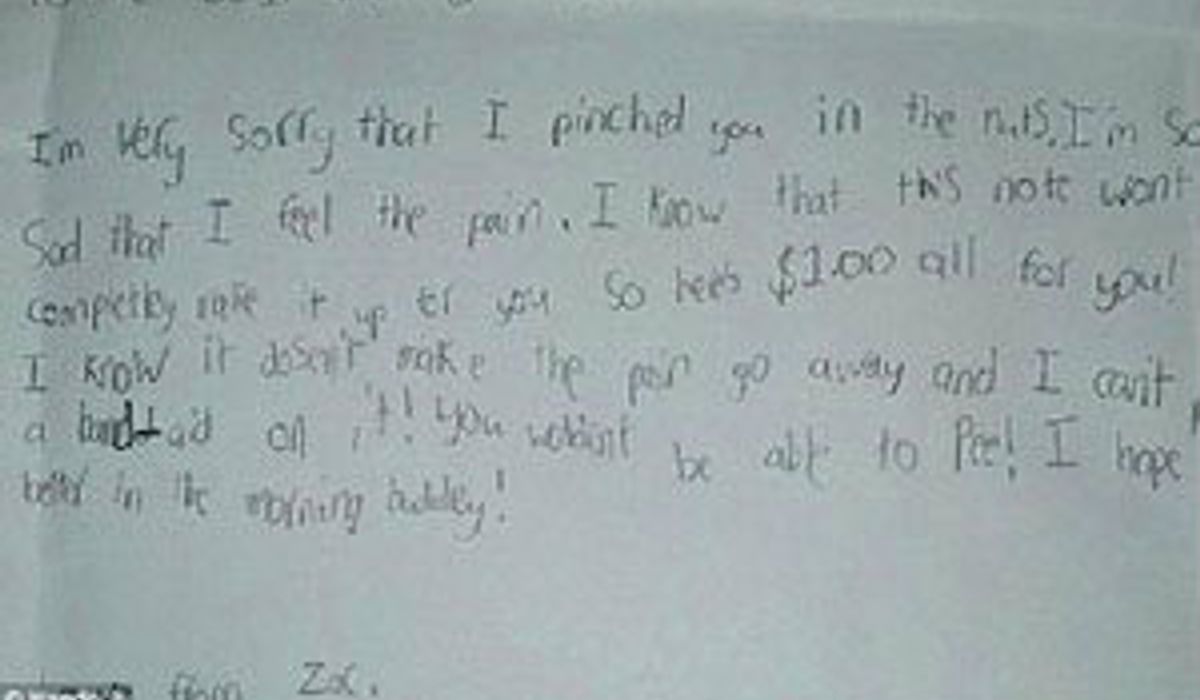 I'm very sorry that I pinched you in the nuts. I'm so
sad that I feel the pain. I know that this note wont
competley make it up to you so heres $1.00 all for you!
I know it doesn't make the pain go away and I can't
a band-aid on it! You wouldn't be able to Pee! I hope
better in the morning buddey!
from Zac.